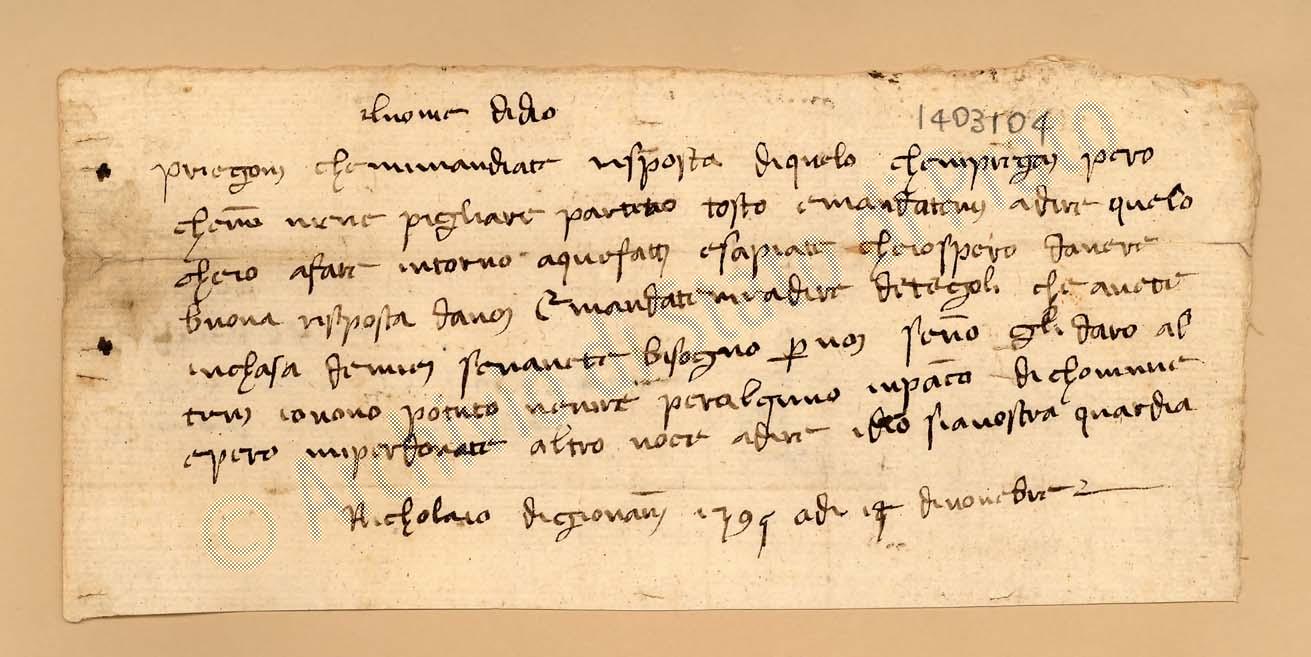 Al nome didio
1403104
priegovi chemmimandiate risposta diquelo chempriegai pero
chemi viene pigliare partito tosto emandatemi adire quelo
cheio afare intorno aquefatti esapiate cheiospero davere
buona risposta davoi emandatemi adire detegoli che avete
inchasa demiei senavete bisogno per voi seno gli daro al
trui ionono potuto venire peralquno inpaco dichomune
epero miperdonate altro noce adire idio siavostra guardia
Nicholaio digiovanni adi di novebre
© Archivio di Stato di Prato